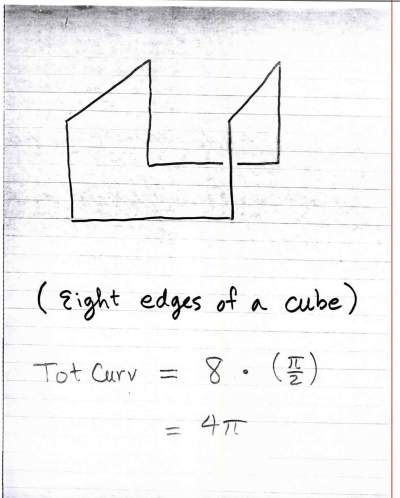 (Eight edges of a cube)
Tot Curv = 8 · (π/2)
= 4π